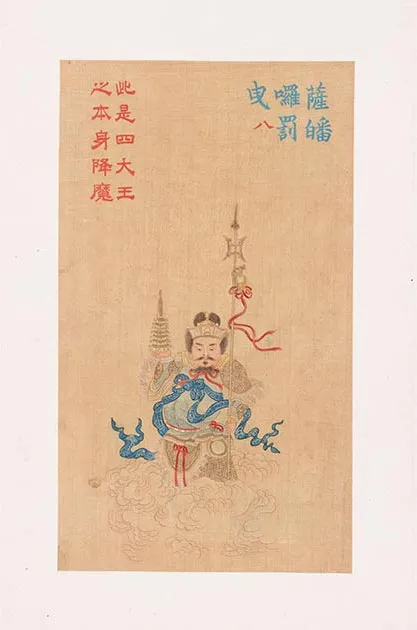 薩皤
囉罰
曳八
此是四大王
之本身降魔